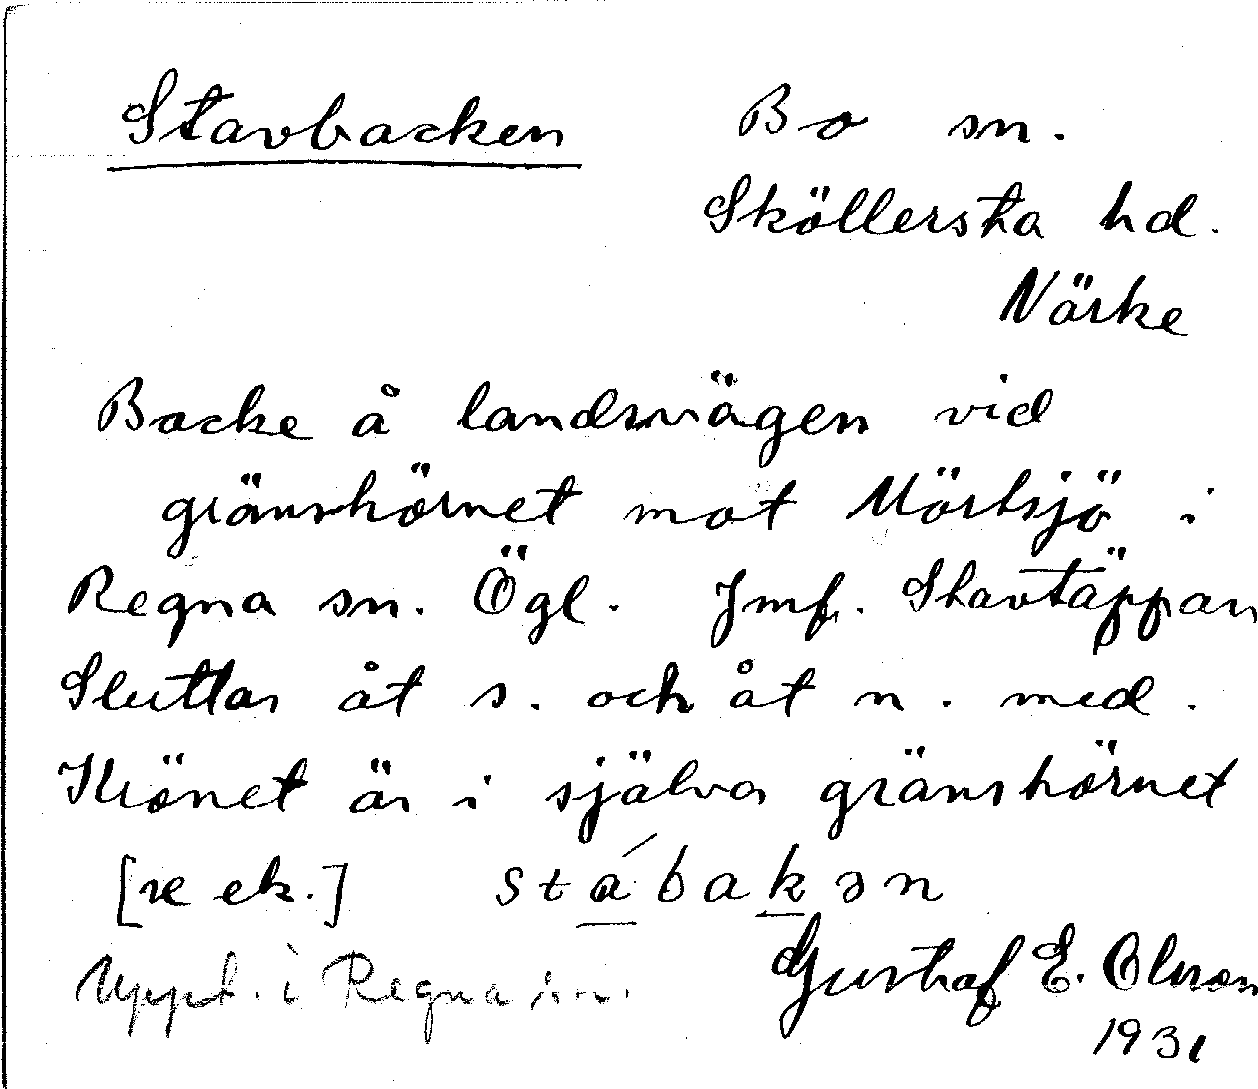 Stavbacken Bo sn.
Sköllersta hd.
Närke
Backe å landsvägen vid
gränshörnet mot Mörtsjö i
Regna sn. Ögl. Jmf. Stavtäppan
Sluttar åt s. och åt n. med.
Krönet är i själva gränshörnet
[se ek.] stábakən
Uppt. i Regna sn. Gustaf E. Olsson
1931